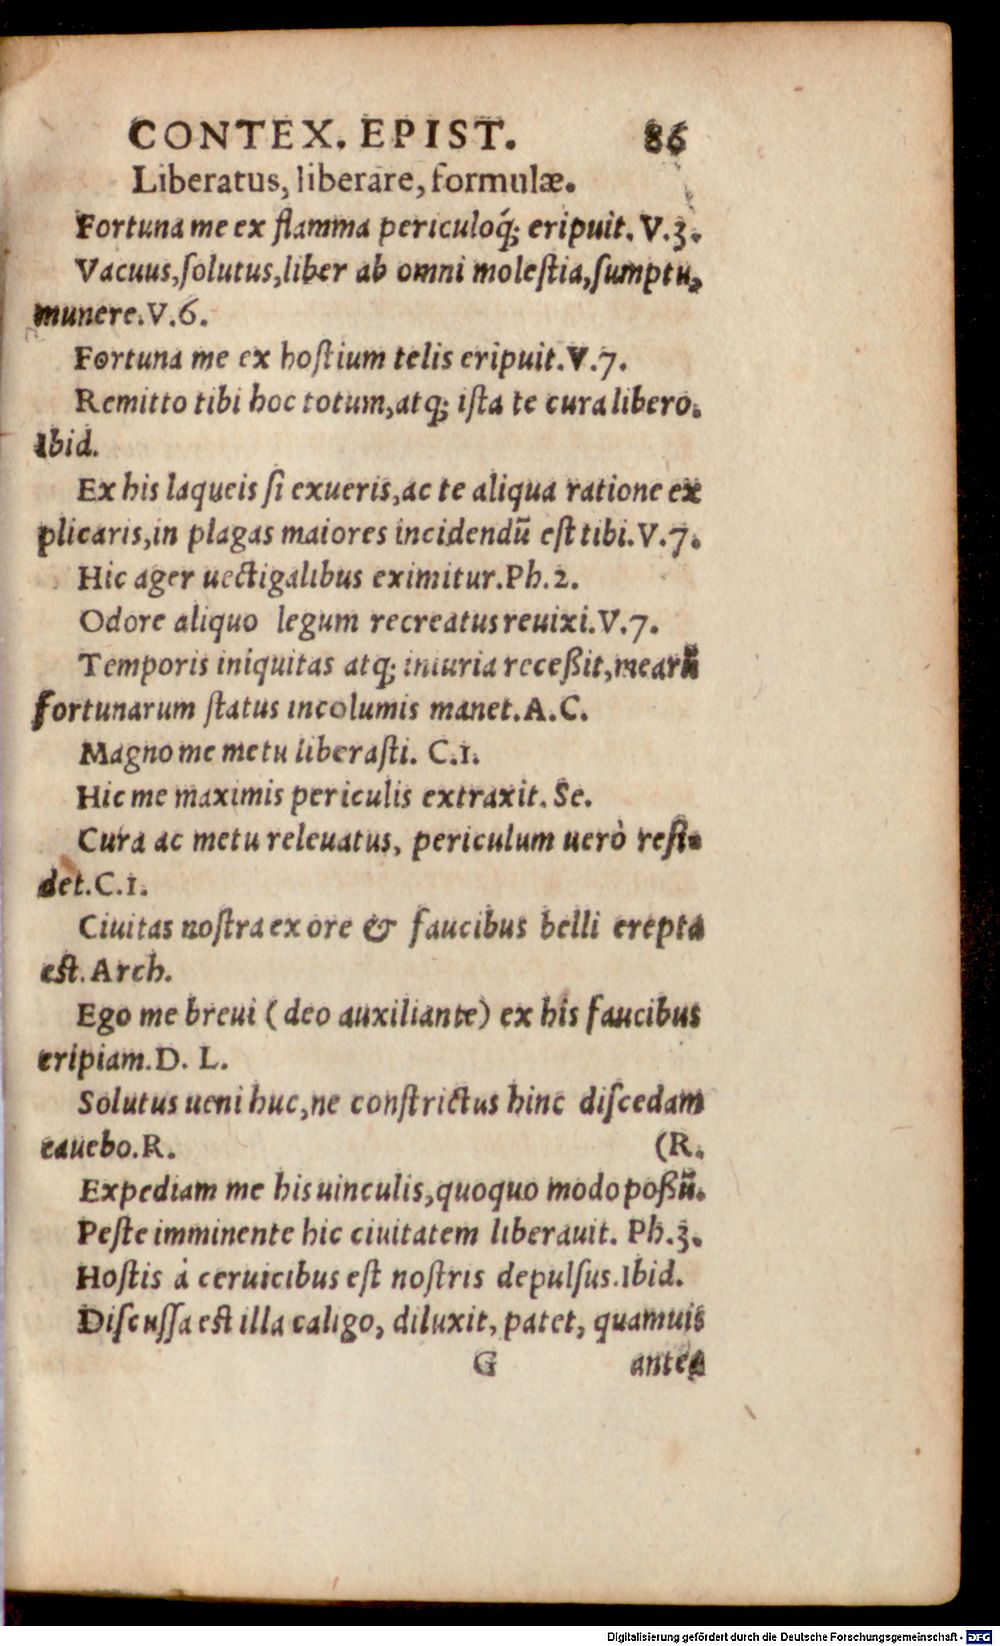 CONTEX. EPIST. 86
Liberatus, liberare, formulæ.
Fortuna me ex flamma periculoq́; eripuit. V.3.
Vacuus,ſolutus,liber ab omni moleſtia,ſumptu,
munere.V.6.
Fortuna me ex hoſtium telis eripuit.V.7.
Remitto tibi hoc totum,atq; iſta te cura libero.
Ibid.
Ex his laqueis ſi exueris,ac te aliqua ratione ex
plicaris,in plagas maiores incidendũ eſt tibi.V.7.
Hic ager uectigalibus eximitur.Ph.2.
Odore aliquo legum recreatus reuixi.V.7.
Temporis iniquitas atq; iniuria receßit,mearũ
fortunarum ſtatus incolumis manet.A.C.
Magno me metu liberaſti. C.1.
Hic me maximis periculis extraxit. Se.
Cura ac metu releuatus, periculum uerò reſi-
det.C.1.
Ciuitas noſtra ex ore & faucibus belli erepta
eſt. Arch.
Ego me breui (deo auxiliante) ex his faucibus
eripiam.D. L.
Solutus ueni huc,ne conſtrictus hinc diſcedam
cauebo.R. (R.
Expediam me his uinculis,quoquo modo poßũ.
Peſte imminente hic ciuitatem liberauit. Ph.3.
Hoſtis à ceruicibus eſt noſtris depulſus.Ibid.
Diſcuſſa eſt illa caligo, diluxit, patet, quamuis
G antea
Digitalisierung gefördert durch die Deutsche Forschungsgemeinschaft - DFG